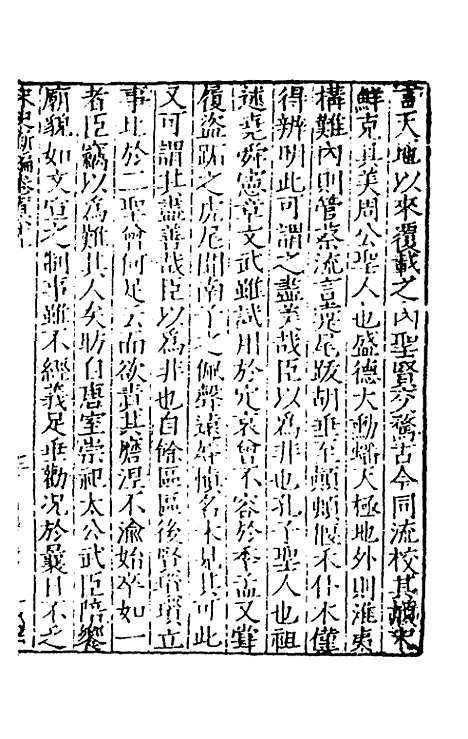 天地以來覆載之內聖賢交騖古今同流校其顛末
鮮克具美周公聖人也盛德大勳蟠天極地外則淮夷
構難內則管蔡流言疐尾跋胡垂至顛頓偃禾仆木僅
得辨明此可謂之盡美哉臣以為非也孔子聖人也祖
述堯舜憲章文武雖試用於定哀曾不容於季孟又嘗
履盜跖之虎尾聞南子之佩聲遠好慎名未見其可此
又可謂其盡善哉臣以為非也自餘區區後賢瑣瑣立
事比於二聖曾何足云而欲責其磨涅不渝始卒如一
者臣竊以為難其人矣昉自唐室崇祀太公武臣陪饗
廟貌如文宣之制事雖不經義足垂勸况於曩日不乏
宋史新編卷